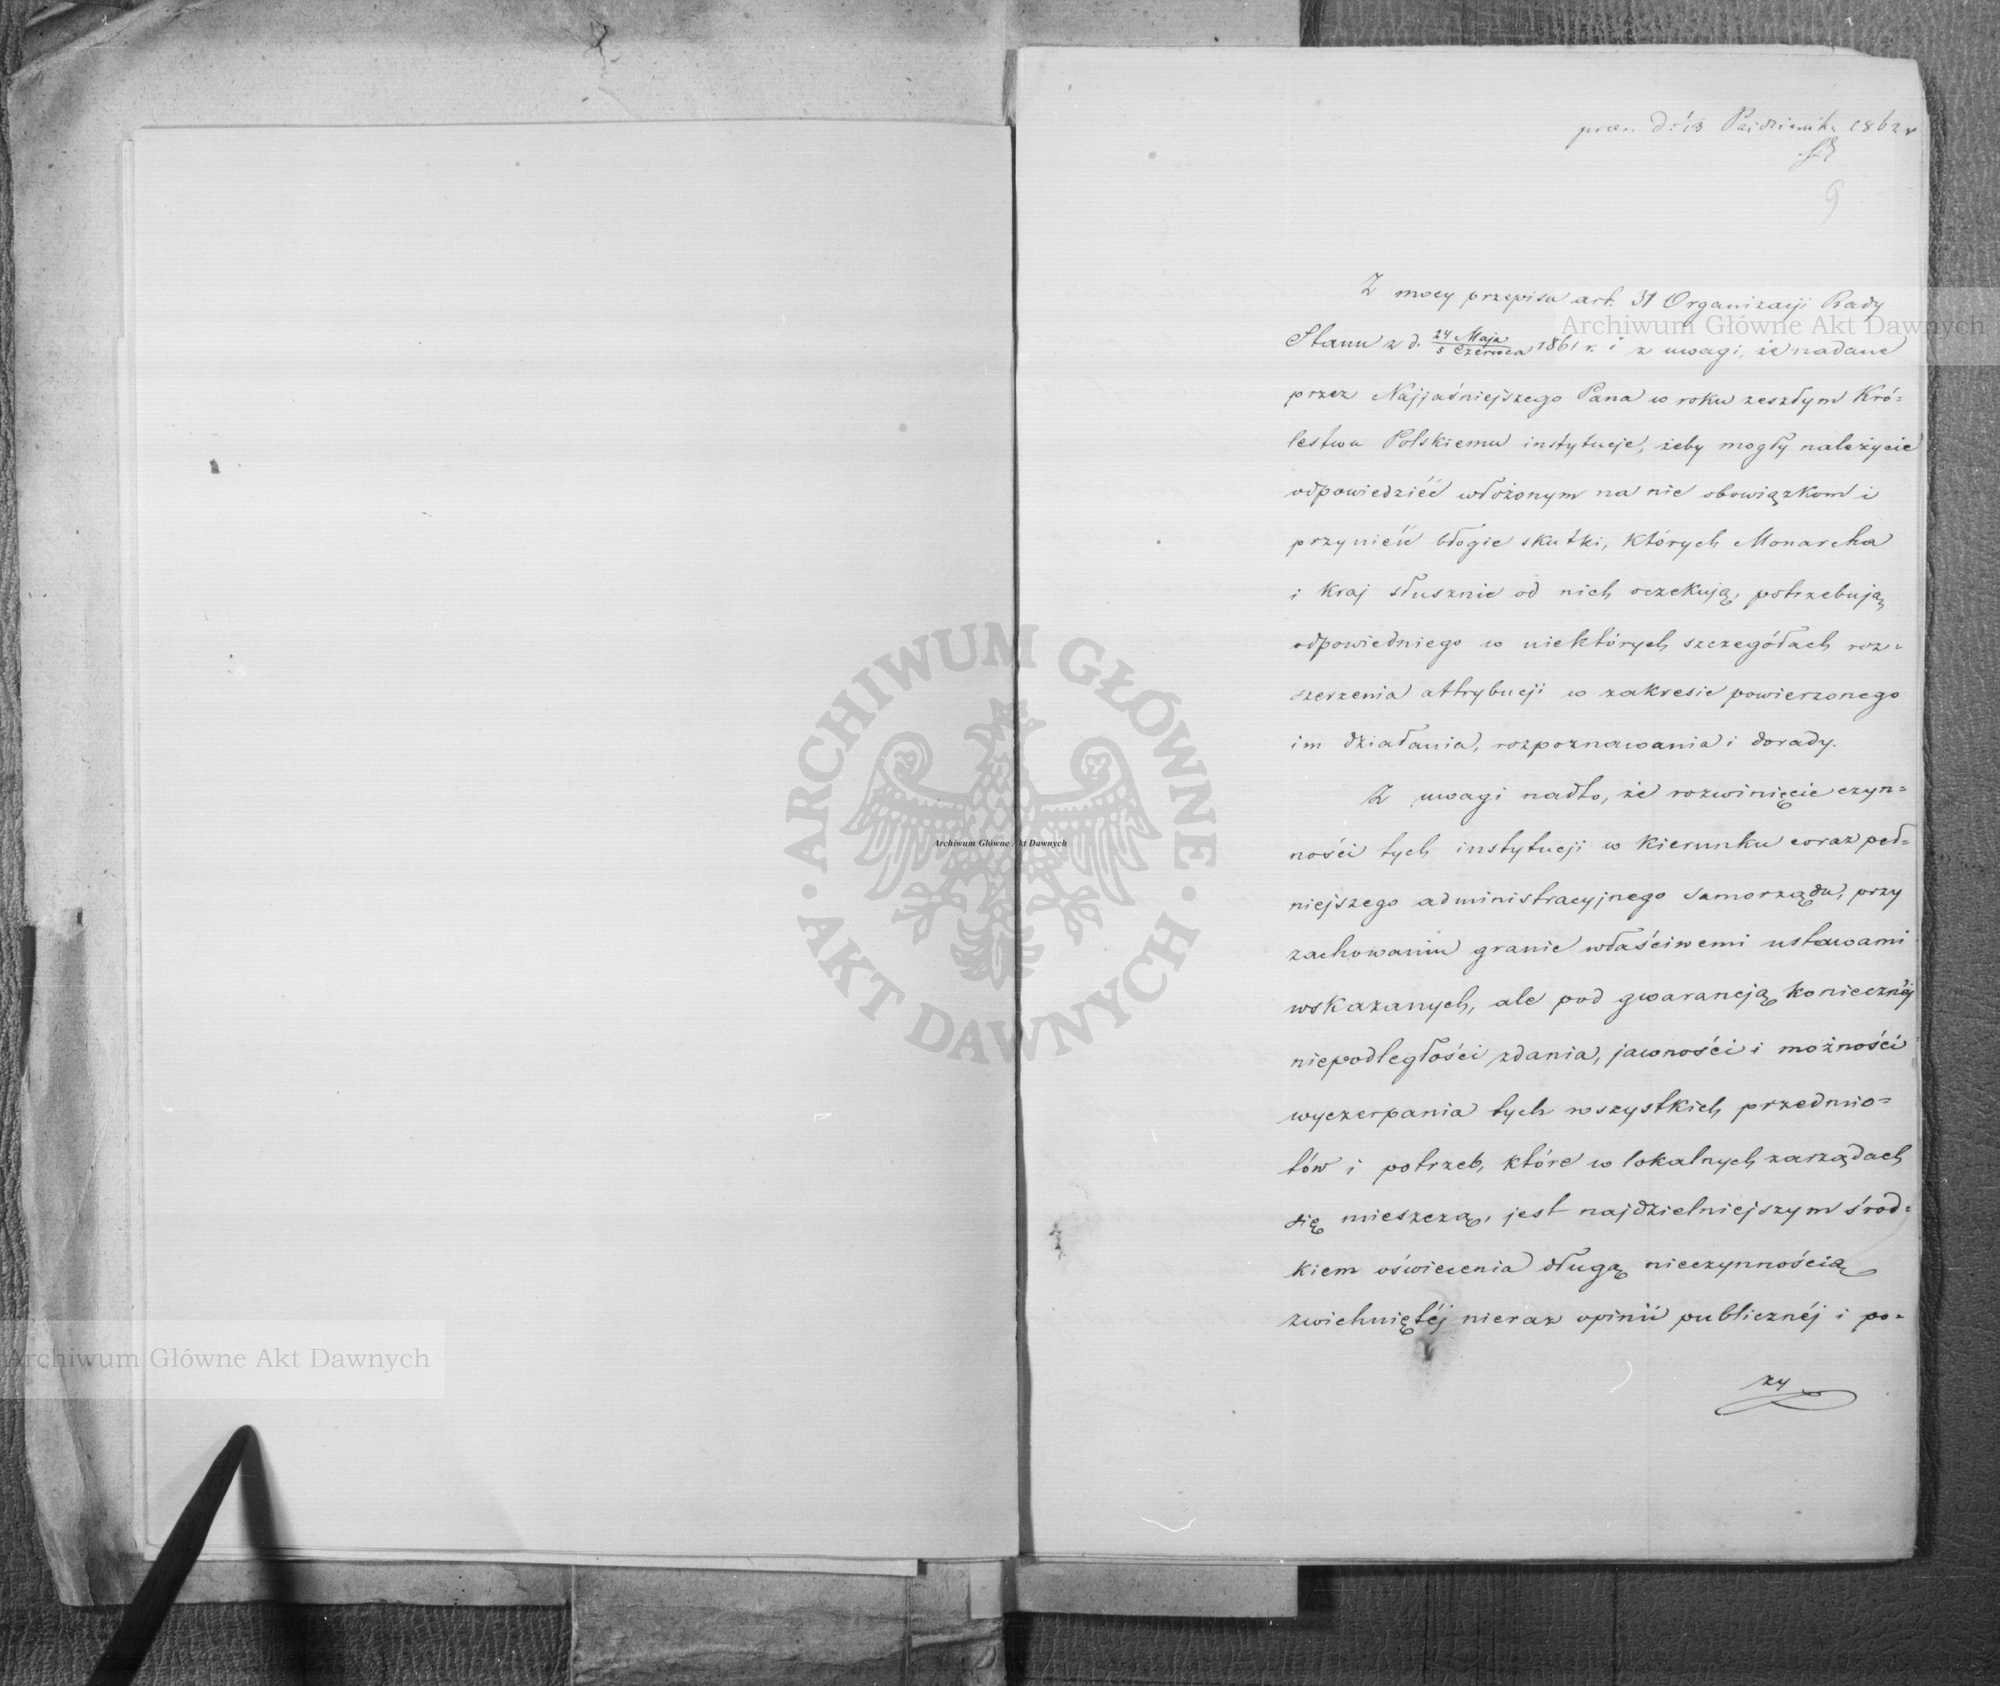 prez. d. 13 Października 1862 r
9
Z mocy przepisu art. 31 Organizacji Rady
Stanu z d. 24 Maja / 5 Czerwca 1861 r. i z uwagi, że nadane
przez Najjaśniejszego Pana w roku zeszłym Kró=
lestwu Polskiemu instytucje, żeby mogły należycie
odpowiedzieć włożonym na nie obowiązkom i
przynieść błogie skutki, których Monarcha
i kraj słusznie od nich oczekują, potrzebują
odpowiedniego w niektórych szczegółach roz=
szerzenia attrybucji w zakresie powierzonego
im działania, rozpoznawania i dorady.
Z uwagi nadto, że rozwinięcie czyn=
ności tych instytucji w kierunku coraz peł=
niejszego administracyjnego samorządu, przy
zachowaniu granic właściwemi ustawami
wskazanych, ale pod gwarancją koniecznéj
niepodległości zdania, jawności i możności
wyczerpania tych wszystkich przedmio=
tów i potrzeb, które w lokalnych zarządach
się mieszczą, jest najdzielniejszym środ=
kiem oświecenia długą nieczynnością
zwichniętéj nieraz opinii publicznéj i po=
zy
Archiwum Główne Akt Dawnych
Archiwum Główne Akt Dawnych
Archiwum Główne Akt Dawnych
ARCHIWUM GŁÓWNE · AKT DAWNYCH ·